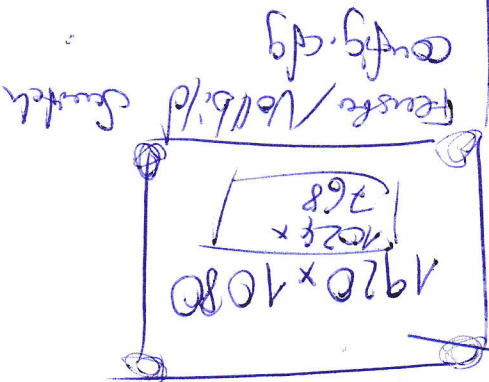 1920 x 1080
1024 x
768
Fenster/Vollbild Switch
config.cfg